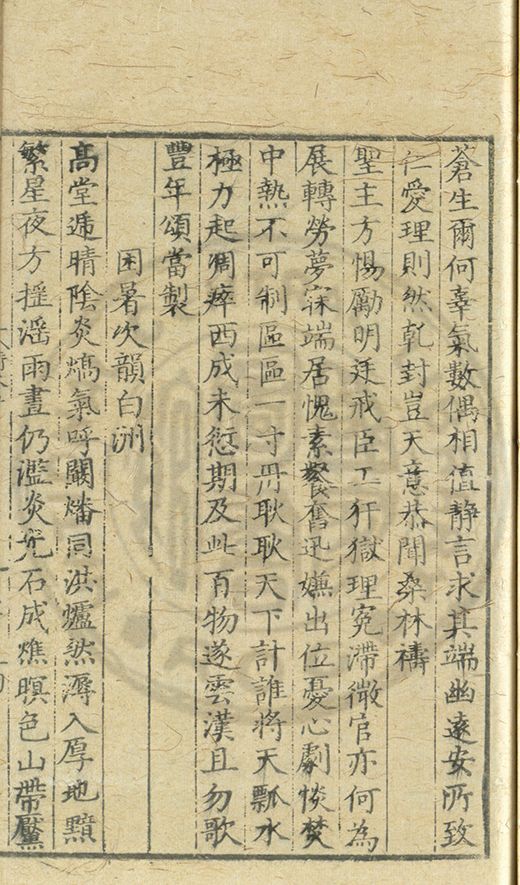 蒼生爾何辜氣數偶相值靜言求其端幽遠安所致
仁愛理則然乾封豈天意恭聞桑林禱
聖主方惕勵明廷戒臣工犴獄理冤滯微官亦何為
展轉勞夢寐端居愧素餐奮迅嫌出位憂心劇惔焚
中熱不可制區區一寸丹耿耿天下計誰將天瓢水
極力起凋瘁西成未愆期及此百物遂雲漢且勿歌
豐年頌當製
困暑次韻白洲
高堂遞晴陰炎熇氣呼闞燔同洪爐然溽入厚地黯
繁星夜方搖滛雨晝仍濫炎光石成燋暝色山帶黶